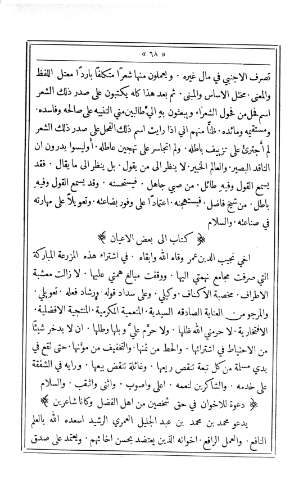 « ٦٨ »
تصرف الاجنبي في مال غيره . ويعملون منها شعرا متكلفا باردا معتل اللفظ
والمعنى . مختل الاساس والمبنى . ثم بعد هذا كله يكتبون على صدر ذلك الشعر
اسم فحل من فحول الشعراء ويبعثون به اليّ طالبين مني التنبيه على صالحه وفاسده .
ومستقيمه ومائده . ظنا منهم اني اذا رايت اسم ذلك الفحل على صدر ذلك الشعر
لم أجترئ على تزييف باطله . ولم اتجاسر على تهجين عاطله . أوليسوا يدرون ان
الناقد البصير . والعالم الخبير . لا ينظر الى من يقول . بل ينظر الى ما يقال . فقد
يسمع القول وفيه طائل . من صبي جاهل . فيستحسنه . وقد يسمع القول وفيه
باطل . من شيخ فاضل . فيستهجنه . اعتمادا على وفور بضاعته . وتعويلا على مهارته
في صناعته . والسلام
﴿ كتاب الى بعض الاعيان ﴾
اخي نجيب الدين عمر وقاه الله وابقاه . في اشتراء هذه المزرعة المباركة
التي صرفت مجامع نهمتي اليها . ووقفت مبالغ همتي عليها . لا زالت معشبة
الاطراف . مخصبة الاكناف . وكيلي . وعلى سداد قوله . ورشاد فعله . تعويلي .
والمرجو من العناية الصادقه السيدية . المنعمية المكرمية . المنتجبية الافضلية .
الافتخارية . لا حرمني الله ظلها . ولا حرّم عليّ وبلها وطلها . ان لا يدخر شيئا
من الاحتياط في اشترائها . والحط من ثمنها . والتخفيف من مؤنها . حتى لقع في
يدي مسلمة من كل تبعة تنقص ريعها . وغائلة تنقض بيعها . ورايه في الشفقة
على خدمه . والشاكرين لنعمه . اعلى واصوب . واثنى واثقب . والسلام
﴿ دعوة للاخوان في حق شخصين من اهل الفضل وكانا شاعرين ﴾
محمد بن محمد بن عبد الجليل العمري الرشيد اسعده الله بالعلم
النافع . والعمل الرافع . اخوانه الذين يعتضد بحسن اخائهم . ويعتمد على صدق